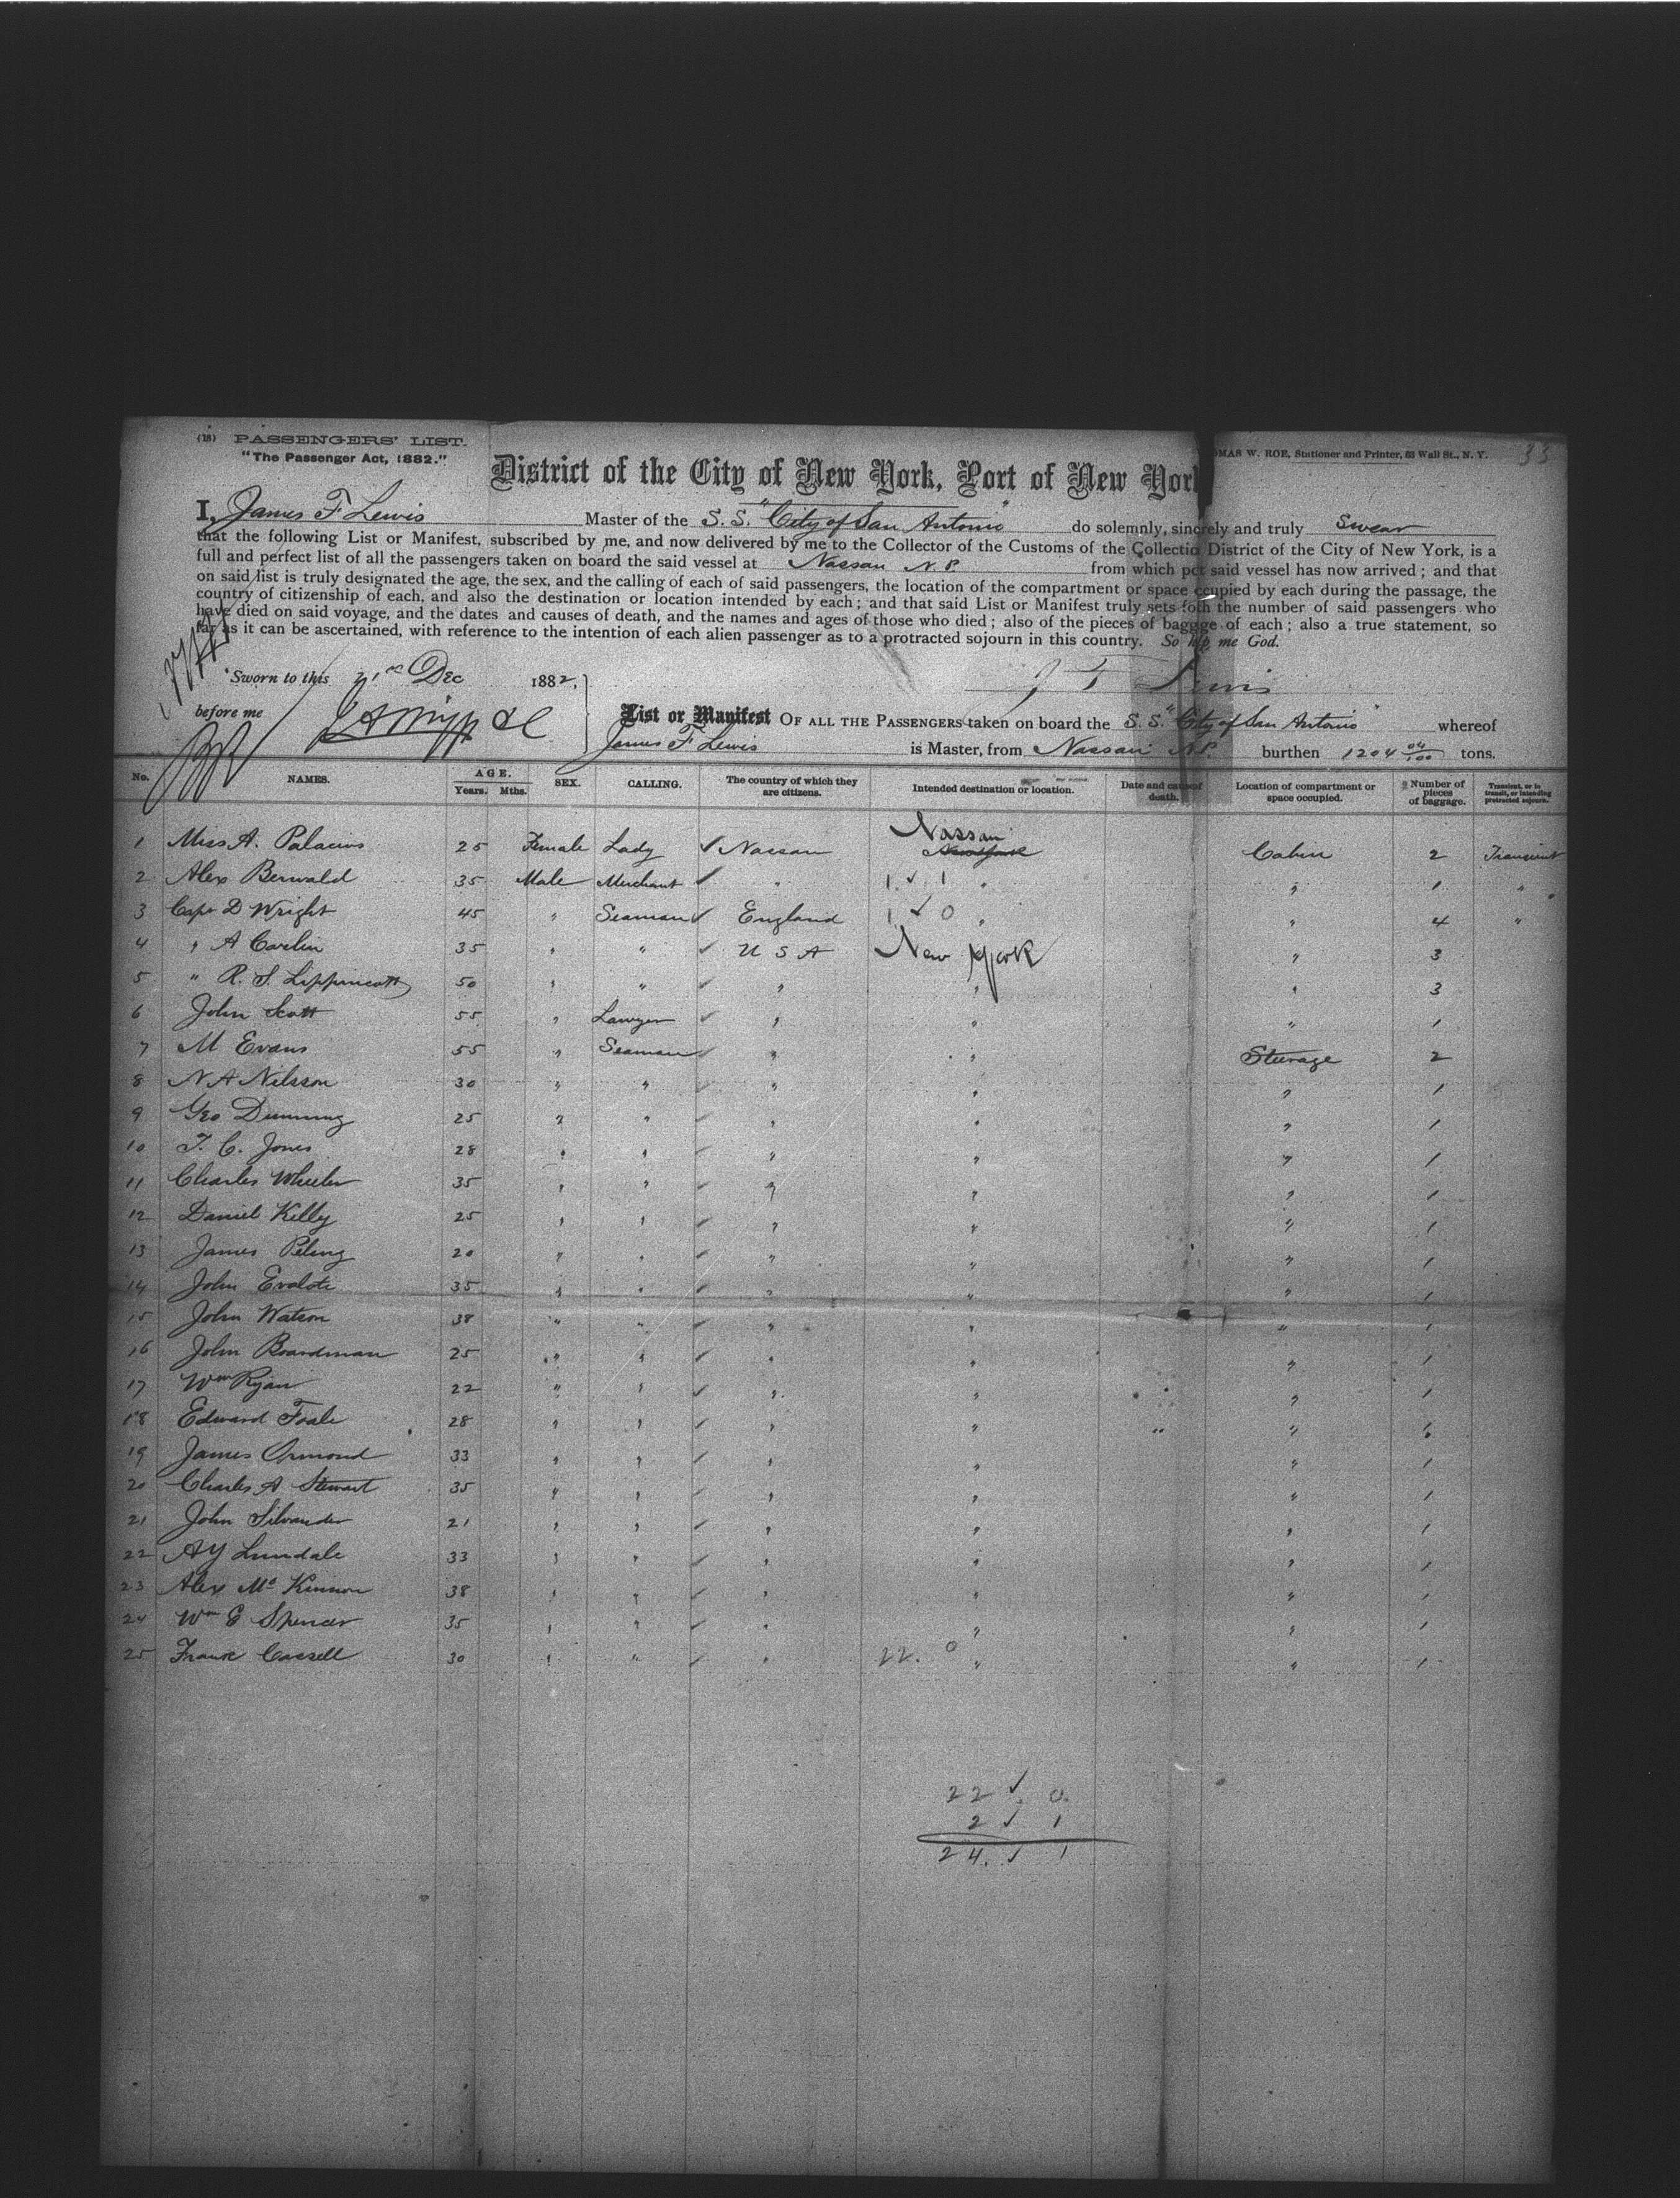 (18) PASSENGERS' LIST.
"The Passenger Act, 1882."
OMAS W. ROE, Stationer and Printer, 83 Wall St., N. Y.
33
District of the City of New York, Port of New York
I, James F Lewis Master of the S. S. "City of San Antonio" do solemnly, sincerely and truly Swear
that the following List or Manifest, subscribed by me, and now delivered by me to the Collector of the Customs of the Collectio District of the City of New York, is a
full and perfect list of all the passengers taken on board the said vessel at Nassau N. P. from which po t said vessel has now arrived; and that
on said list is truly designated the age, the sex, and the calling of each of said passengers, the location of the compartment or space ccupied by each during the passage, the
country of citizenship of each, and also the destination or location intended by each; and that said List or Manifest truly sets foth the number of said passengers who
have died on said voyage, and the dates and causes of death, and the names and ages of those who died; also of the pieces of baggage of each; also a true statement, so
far as it can be ascertained, with reference to the intention of each alien passenger as to a protracted sojourn in this country. So h lp me God.
Sworn to this 21st Dec 1882,
J F Lewis
before me
List or Manifest OF ALL THE PASSENGERS taken on board the S. S. "City of San Antonio" whereof
James F Lewis is Master, from Nassau N. P. burthen 1204 04/100 tons.
No. NAMES. AGE. Years. Mths. SEX. CALLING. The country of which they are citizens. Intended destination or location. Date and cause of death. Location of compartment or space occupied. Number of pieces of baggage. Transient, or in transit, or intending protracted sojourn.
Nassau
1 Miss A. Palacius 25 Female Lady ✓ Nassau New York Cabin 2 Transient
2 Alex Berwald 35 Male Merchant ✓ " 1. ✓ 1 " " 1 "
3 Capt D Wright 45 " Seaman ✓ England 1 ✓ 0 " " 4 "
4 " A Carlin 35 " " ✓ U S A New York " 3
5 " R. S. Lippincott 50 " " ✓ " " " 3
6 John Scott 55 " Lawyer ✓ " " " 1
7 M Evans 55 " Seaman ✓ " " Steerage 2
8 N A Nilsson 30 " " ✓ " " " 1
9 Geo Dunning 25 " " ✓ " " " 1
10 T. C. Jones 28 " " ✓ " " " 1
11 Charles Wheeler 35 " " ✓ " " " 1
12 Daniel Kelly 25 " " ✓ " " " 1
13 James Peling 20 " " ✓ " " " 1
14 John Evalote 35 " " ✓ " " " 1
15 John Watson 38 " " ✓ " " " 1
16 John Boardman 25 " " ✓ " " " 1
17 Wm Ryan 22 " " ✓ " " " 1
18 Edward Foale 28 " " ✓ " " " 1
19 James Ormond 33 " " ✓ " " " 1
20 Charles A Stewart 35 " " ✓ " " " 1
21 John Silvander 21 " " ✓ " " " 1
22 A Y Lundale 33 " " ✓ " " " 1
23 Alex Mc Kinnon 38 " " ✓ " " " 1
24 Wm E Spencer 35 " " ✓ " " " 1
25 Frank Cassell 30 " " ✓ " 22. 0 " " 1
22 ✓ 0.
2 ✓ 1
24. ✓ 1